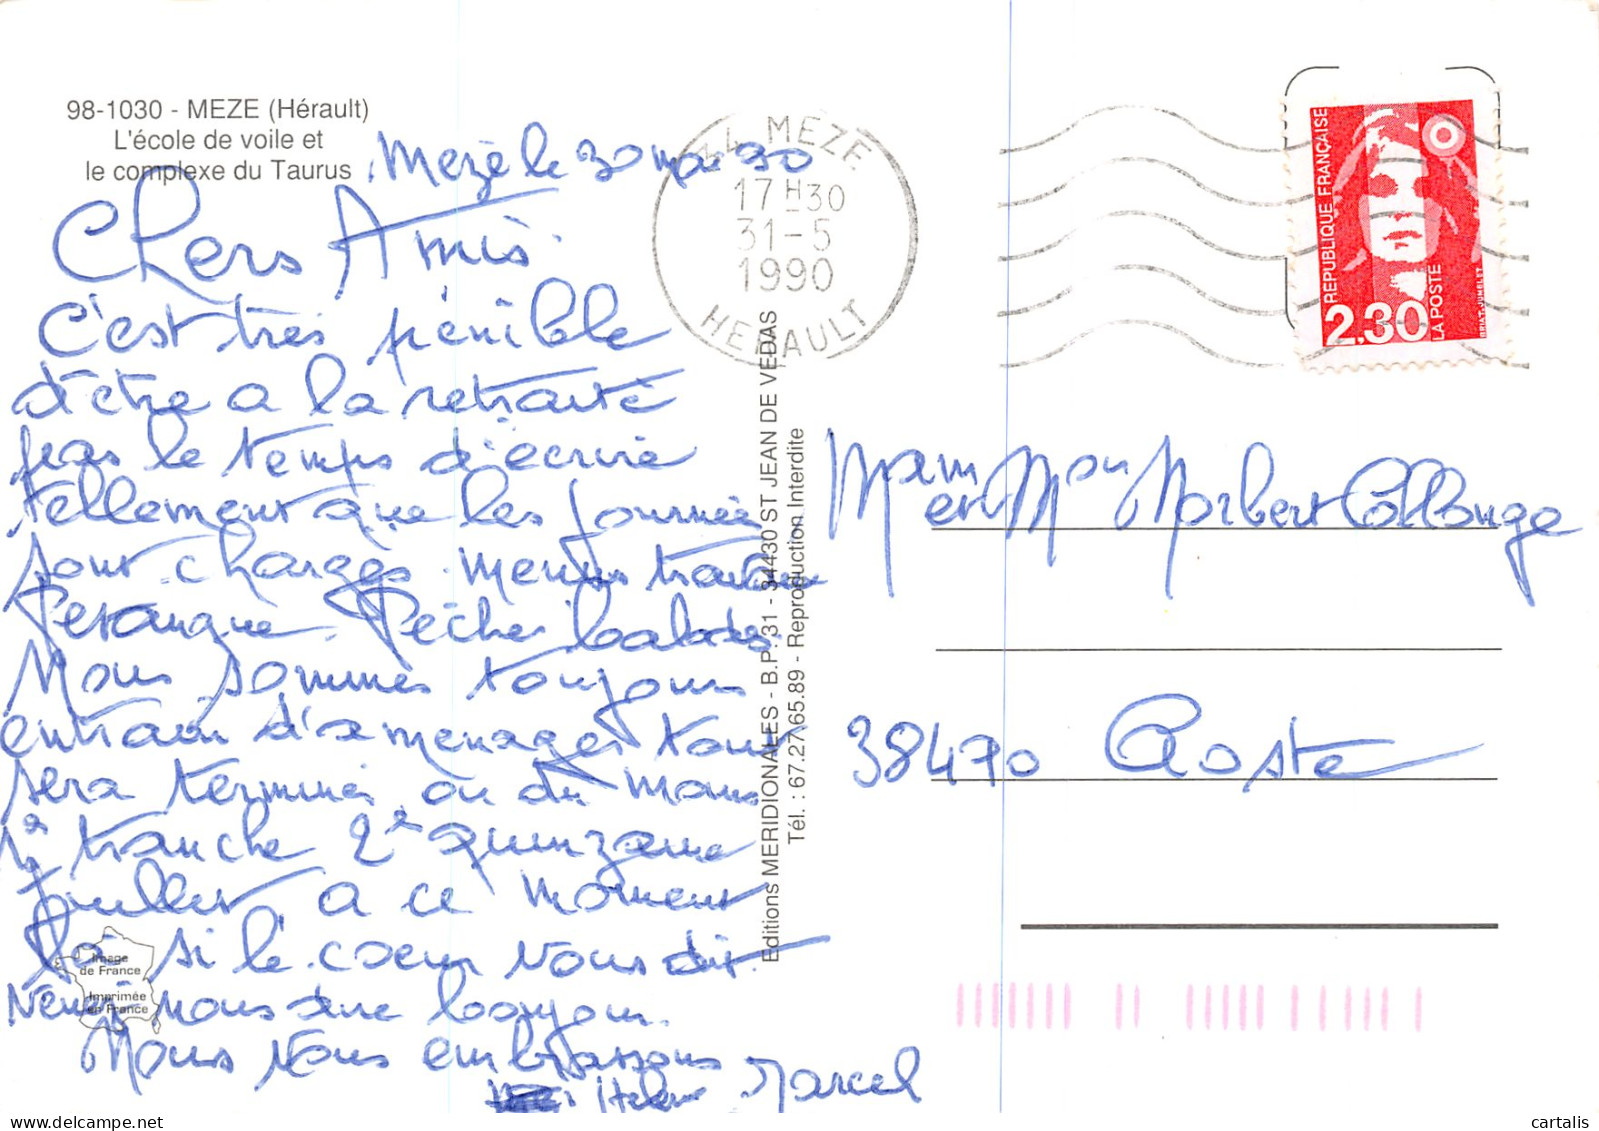 98-1030 - MEZE (Hérault)
L'école de voile et
le complexe du Taurus
Mezé le 30 mai 90
Chers Amis.
C'est très pénible
d'être a la retraité
pas le temps d'écrire
tellement que les journée
sont chargés. menus travaux
Petanque. Pêche balades.
Nous sommes toujours
entrain d'amenager tout
sera terminé ou du moins
1e tranche 2e quinzaine
Juillet a ce moment
la si le coeur vous dit
Venez nous dire bonjour.
Nous vous embrassons
Helene Marcel
Image
de France
Imprimée
en France
Editions MERIDIONALES - B.P. 31 - 34430 ST JEAN DE VEDAS
Tél. : 67.27.65.89 - Reproduction Interdite
34 MEZE
17 H 30
31-5
1990
HERAULT
REPUBLIQUE FRANÇAISE
2,30
LA POSTE
BRIAT-JUMELET
Mam et Mon Norbert Collonge
38470 Aoste
cartalis